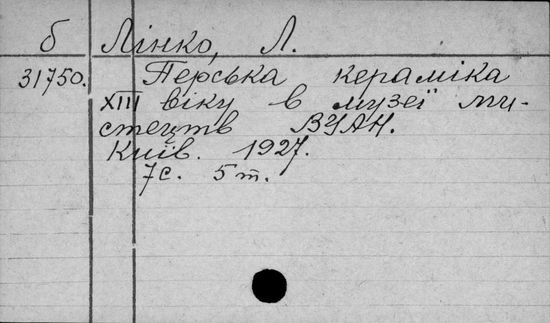 б Лінко, Л.
31750. Перська кераміка
XIII віку в музеї ми-
стецтв ВУАН.
Київ. 1927.
7с. 5т.